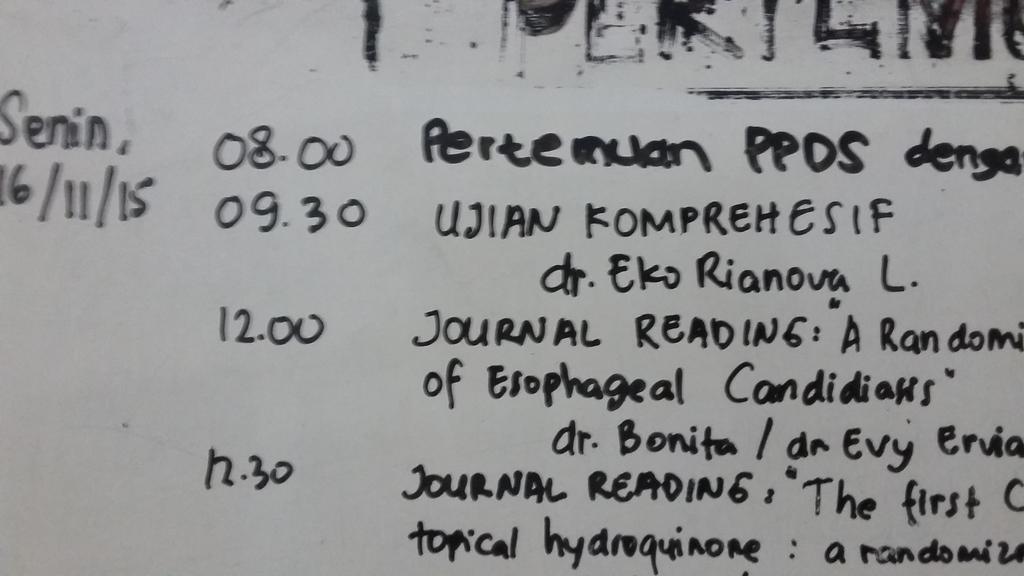 PERTEMU
Senin,
16/11/15
08.00 Pertemuan PPDS denga
09.30 UJIAN KOMPREHESIF
dr. Eko Rianova L.
12.00 JOURNAL READING: "A Randomi
of Esophageal Candidiasis"
dr. Bonita / dr Evy Ervia
12.30 JOURNAL READING: "The first C
topical hydroquinone : a randomiz